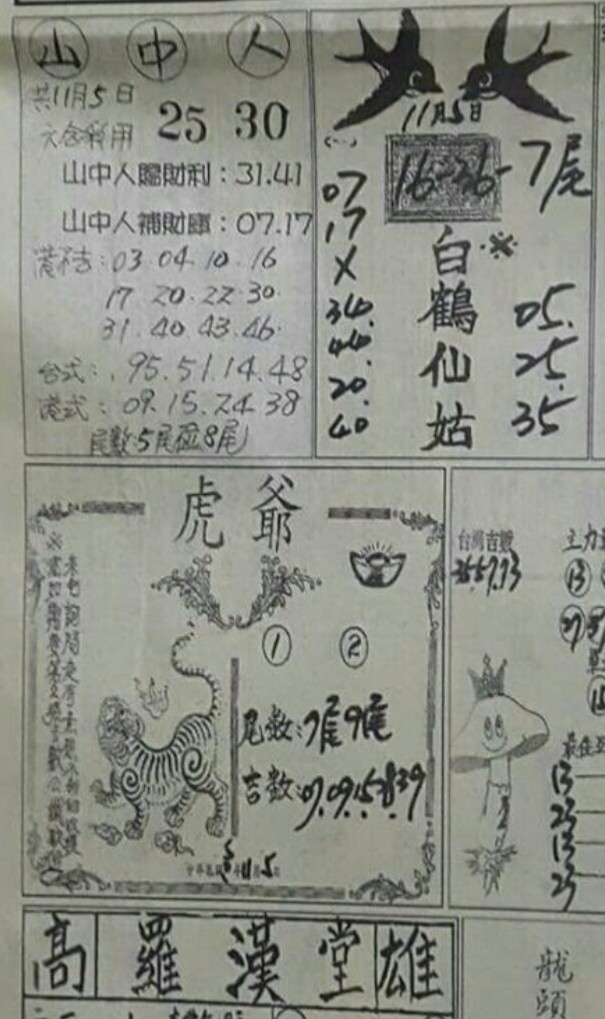 山中人
共11月5日
六合彩用 25 30
山中人賜財利：31.41
山中人補財庫：07.17
03.04.10.16
17 20.22.30.
31.40 43.46.
台式：. 95.51.14.48
港式：09.15.24.38
尾數5尾 8尾
11月5日
16-36-7尾
07
17
X
34.
44.
20.
40
白鶴仙姑
※
05.
25.
35
虎爺
① ②
尾数：7尾9尾
吉数：07.09.15.28.39
11月5日
台灣吉數
主力
⑬
最佳
13
23
13
23
高 羅漢堂 雄
龍
頭